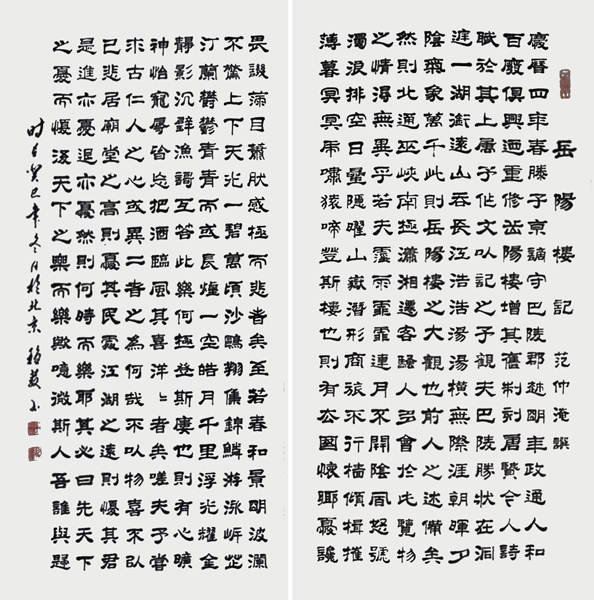 岳陽樓記 范仲淹撰
慶曆四年春滕子京謫守巴陵郡越明年政通人和
百廢俱興迺重修岳陽樓增其舊制刻唐賢今人詩
賦於其上屬予作文以記之予觀夫巴陵勝狀在洞
庭一湖銜遠山吞長江浩浩湯湯橫無際涯朝暉夕
陰氣象萬千此則岳陽樓之大觀也前人之述備矣
然則北通巫峽南極瀟湘遷客騷人多會於此覽物
之情得無異乎若夫霪雨霏霏連月不開陰風怒號
濁浪排空日星隱曜山嶽潛形商旅不行檣傾楫摧
薄暮冥冥虎嘯猿啼登斯樓也則有去國懷鄉憂讒
畏譏滿目蕭然感極而悲者矣至若春和景明波瀾
不驚上下天光一碧萬頃沙鷗翔集錦鱗游泳岸芷
汀蘭鬱鬱青青而或長煙一空皓月千里浮光耀金
靜影沉璧漁歌互答此樂何極登斯樓也則有心曠
神怡寵辱皆忘把酒臨風其喜洋洋者矣嗟夫予嘗
求古仁人之心或異二者之為何哉不以物喜不以
已悲居廟堂之高則憂其民處江湖之遠則憂其君
是進亦憂退亦憂然則何時而樂耶其必曰先天下
之憂而憂後天下之樂而樂歟噫微斯人吾誰與歸
时在癸巳年冬月於北京